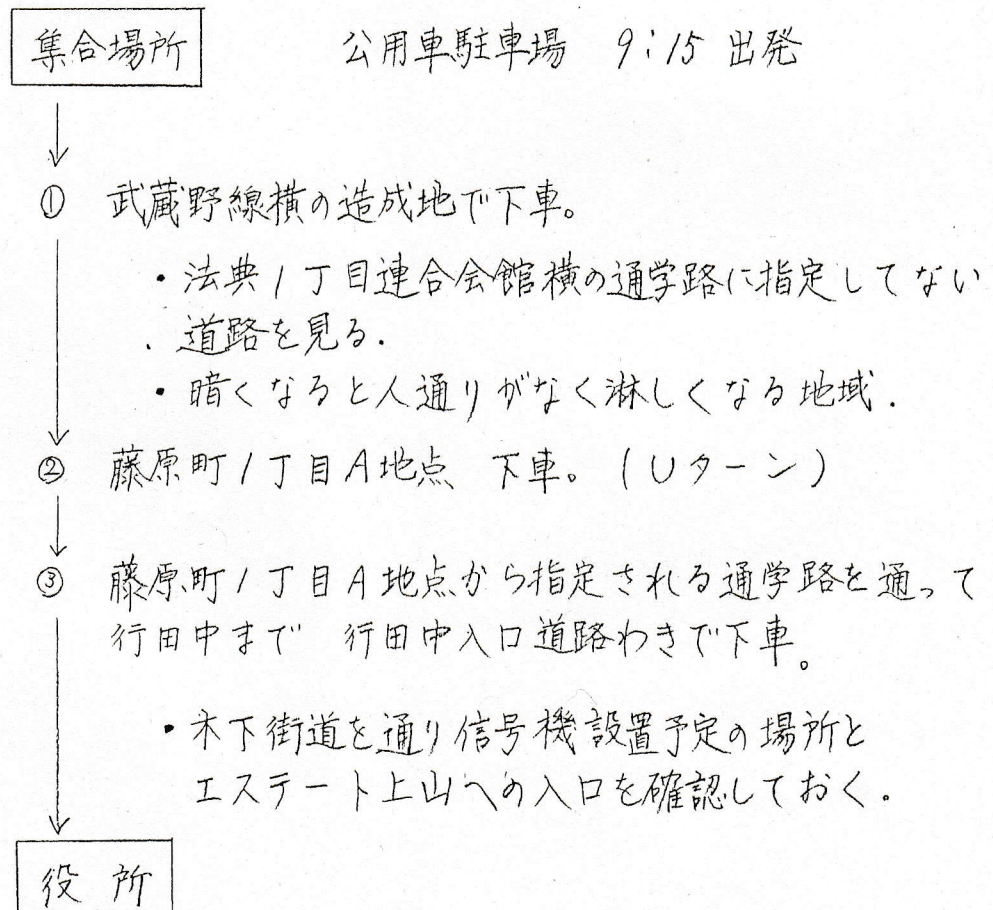 集合場所 公用車駐車場 9:15 出発
① 武蔵野線横の造成地で下車。
・法典1丁目連合会館横の通学路に指定してない
道路を見る.
・暗くなると人通りがなく淋しくなる地域.
② 藤原町1丁目A地点 下車。(Uターン)
③ 藤原町1丁目A地点から指定される通学路を通って
行田中まで 行田中入口道路わきで下車。
・木下街道を通り信号機設置予定の場所と
エステート上山への入口を確認しておく。
役所